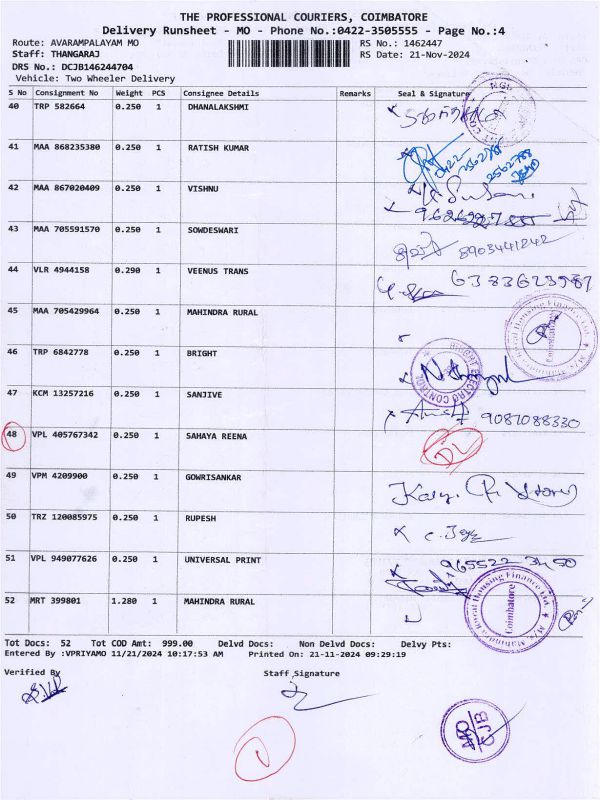 THE PROFESSIONAL COURIERS, COIMBATORE
Delivery Runsheet - MO - Phone No.:0422-3505555 - Page No.:4
Route: AVARAMPALAYAM MO RS No.: 1462447
Staff: THANGARAJ RS Date: 21-Nov-2024
DRS No.: DCJB146244704
Vehicle: Two Wheeler Delivery
S No Consignment No Weight PCS Consignee Details Remarks Seal & Signature
40 TRP 582664 0.250 1 DHANALAKSHMI
41 MAA 868235380 0.250 1 RATISH KUMAR
0422
2562788
42 MAA 867020409 0.250 1 VISHNU
43 MAA 705591570 0.250 1 SOWDESWARI 8903441242
44 VLR 4944158 0.290 1 VEENUS TRANS 6383623987
45 MAA 705429964 0.250 1 MAHINDRA RURAL
46 TRP 6842778 0.250 1 BRIGHT
BRIGHT ELECTRO CONTROL
47 KCM 13257216 0.250 1 SANJIVE 9087088330
48 VPL 405767342 0.250 1 SAHAYA REENA DL
49 VPM 4209900 0.250 1 GOWRISANKAR
50 TRZ 120085975 0.250 1 RUPESH
51 VPL 949077626 0.250 1 UNIVERSAL PRINT
52 MRT 399801 1.280 1 MAHINDRA RURAL
M/s. Mahindra Rural Housing Finance Ltd.
Coimbatore
Tot Docs: 52 Tot COD Amt: 999.00 Delvd Docs: Non Delvd Docs: Delvy Pts:
Entered By :VPRIYAMO 11/21/2024 10:17:53 AM Printed On: 21-11-2024 09:29:19
Verified By Staff Signature
MO
CJB